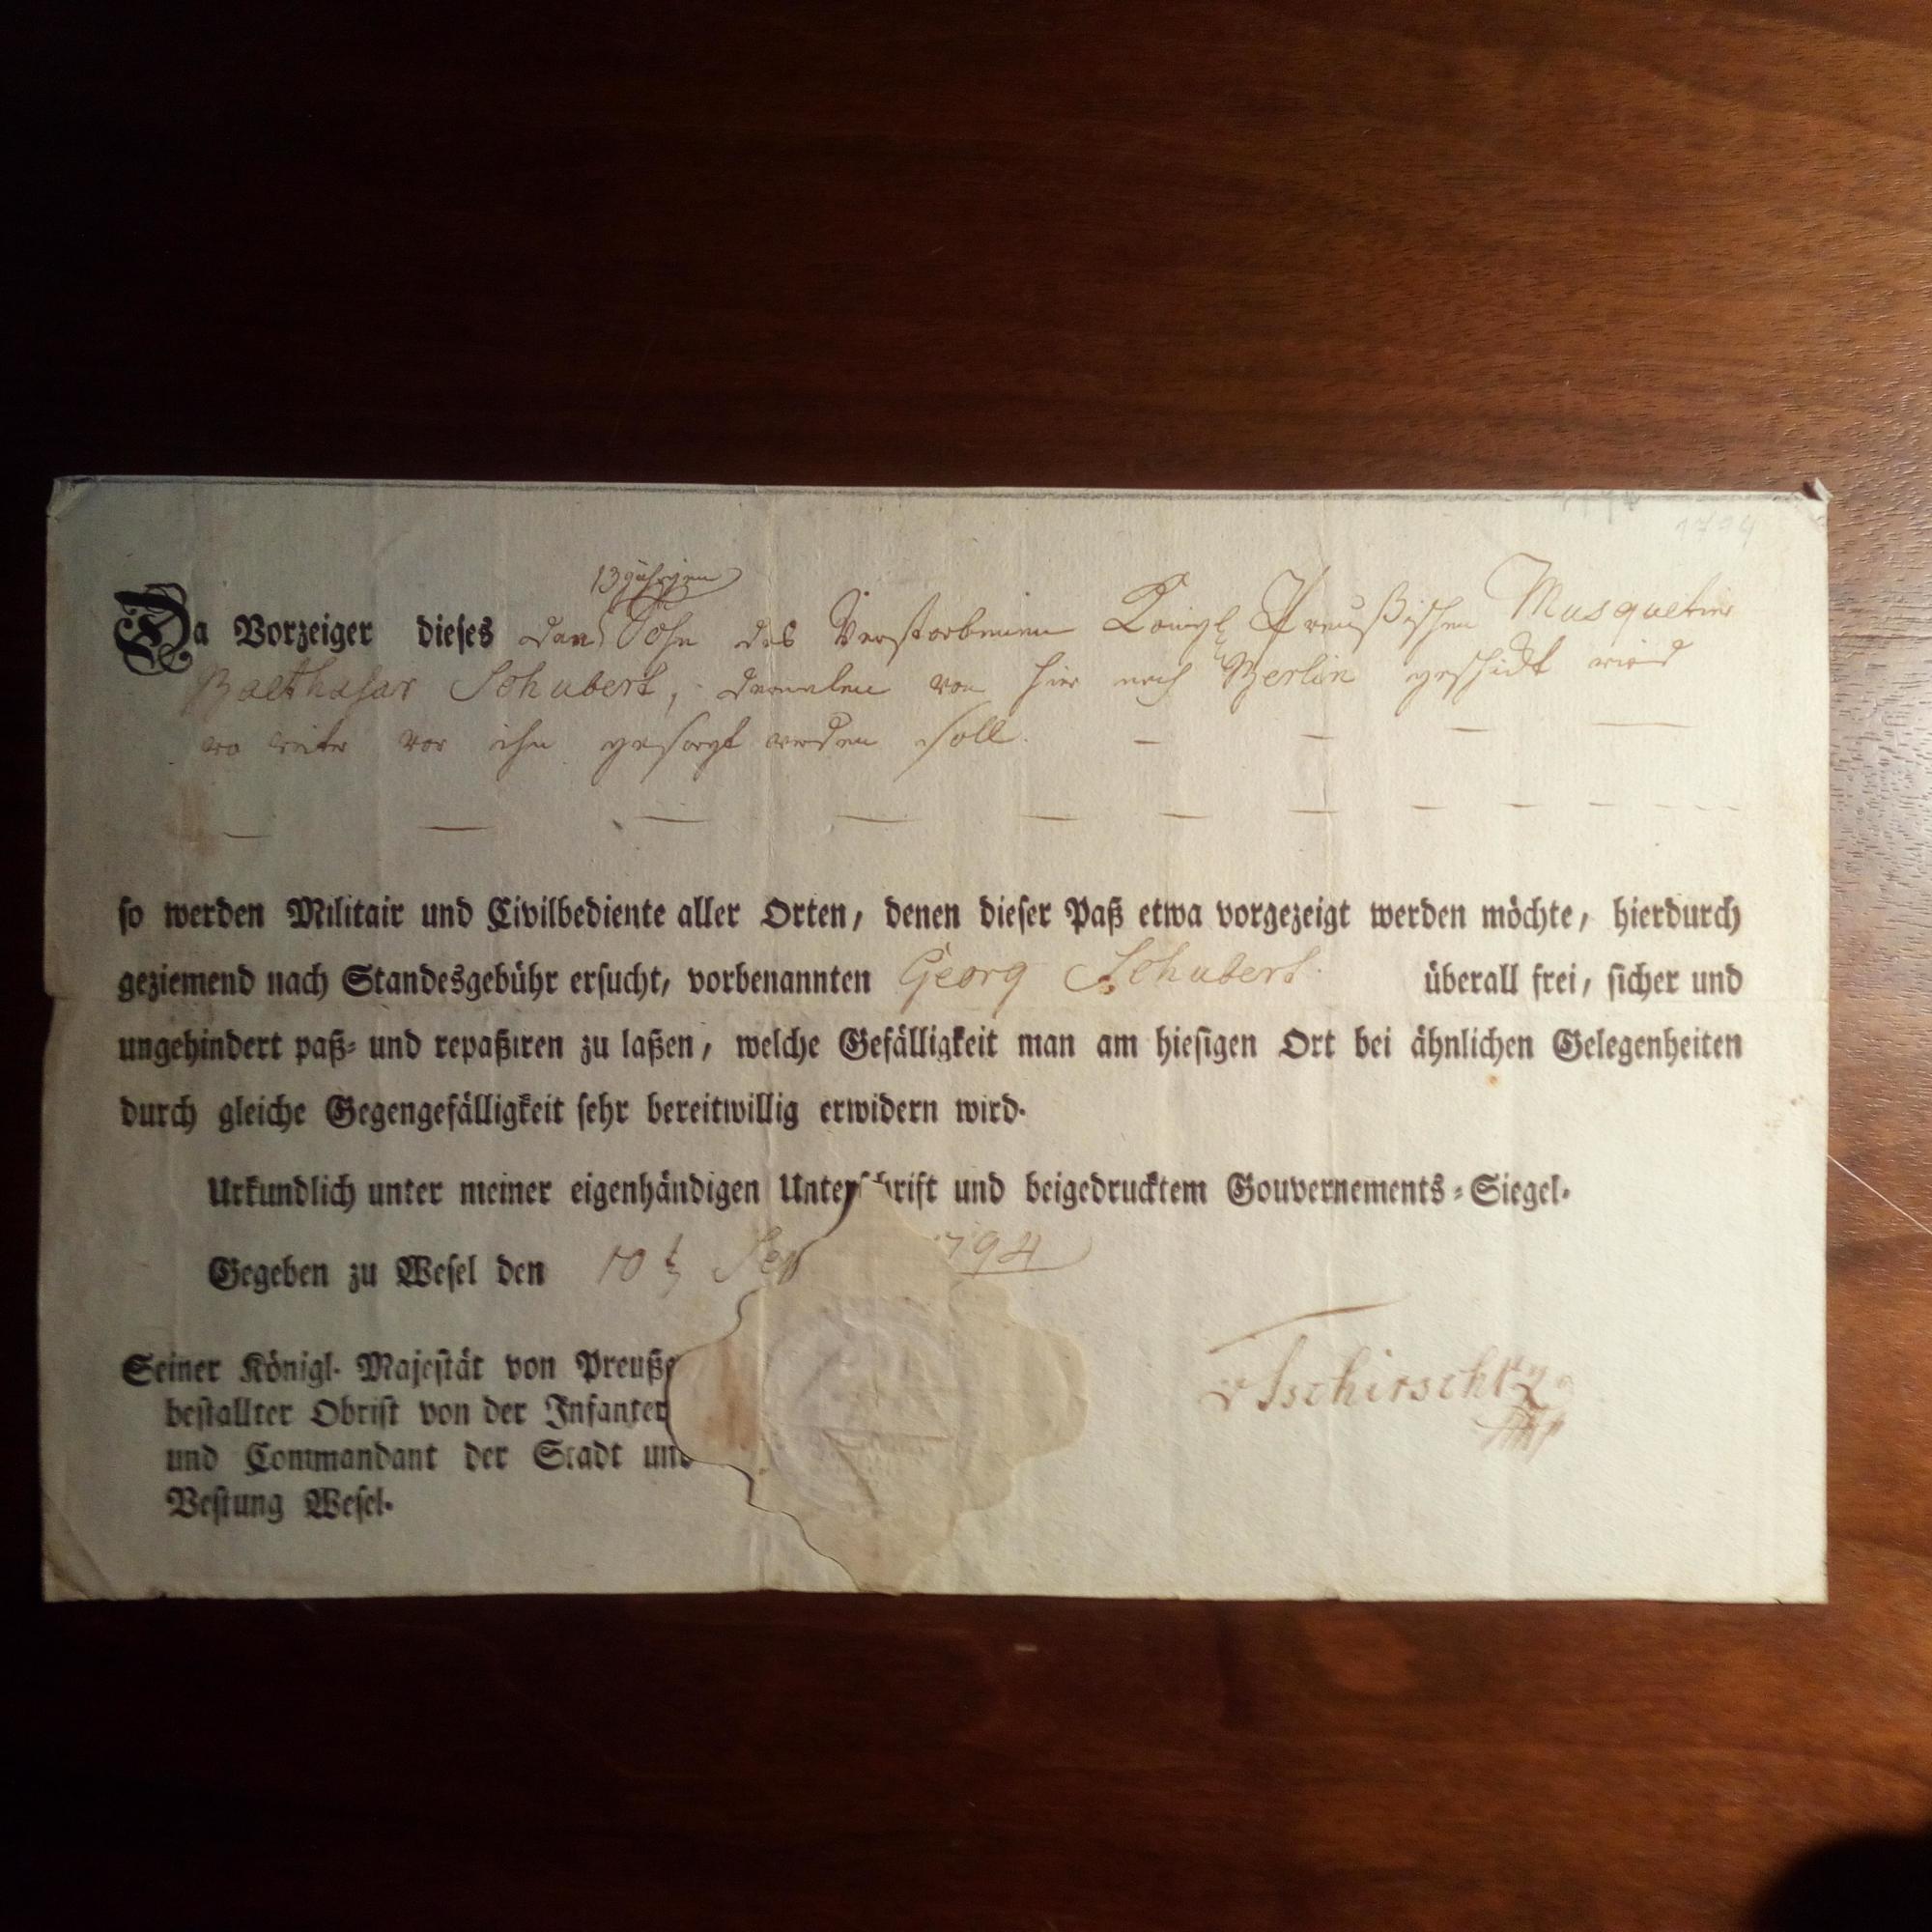 1794
13jährigen
Da Vorzeiger dieses den Sohn des Verstorbenen Königl Preußischen Musquetier
Balthasar Schubert, dermalen von hier nach Berlin geschickt wird
wo weiter vor ihn gesorgt werden soll.
so werden Militair und Civilbediente aller Orten, denen dieser Paß etwa vorgezeigt werden möchte, hierdurch
geziemend nach Standesgebühr ersucht, vorbenannten Georg Schubert. überall frei, sicher und
ungehindert paß- und repaßiren zu laßen, welche Gefälligkeit man am hiesigen Ort bei ähnlichen Gelegenheiten
durch gleiche Gegengefälligkeit sehr bereitwillig erwidern wird.
Urkundlich unter meiner eigenhändigen Unterschrift und beigedrucktem Gouvernements-Siegel.
Gegeben zu Wesel den 10t Sep 794
Seiner Königl. Majestät von Preuße
bestallter Obrist von der Infanter
und Commandant der Stadt und
Vestung Wesel.
v Tschirschky